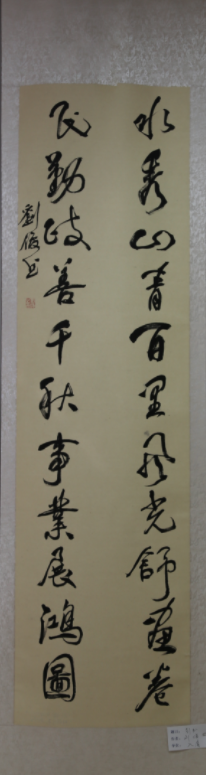 水秀山青百里风光舒画卷
民勤政善千秋事業展鴻圖
劉俊书